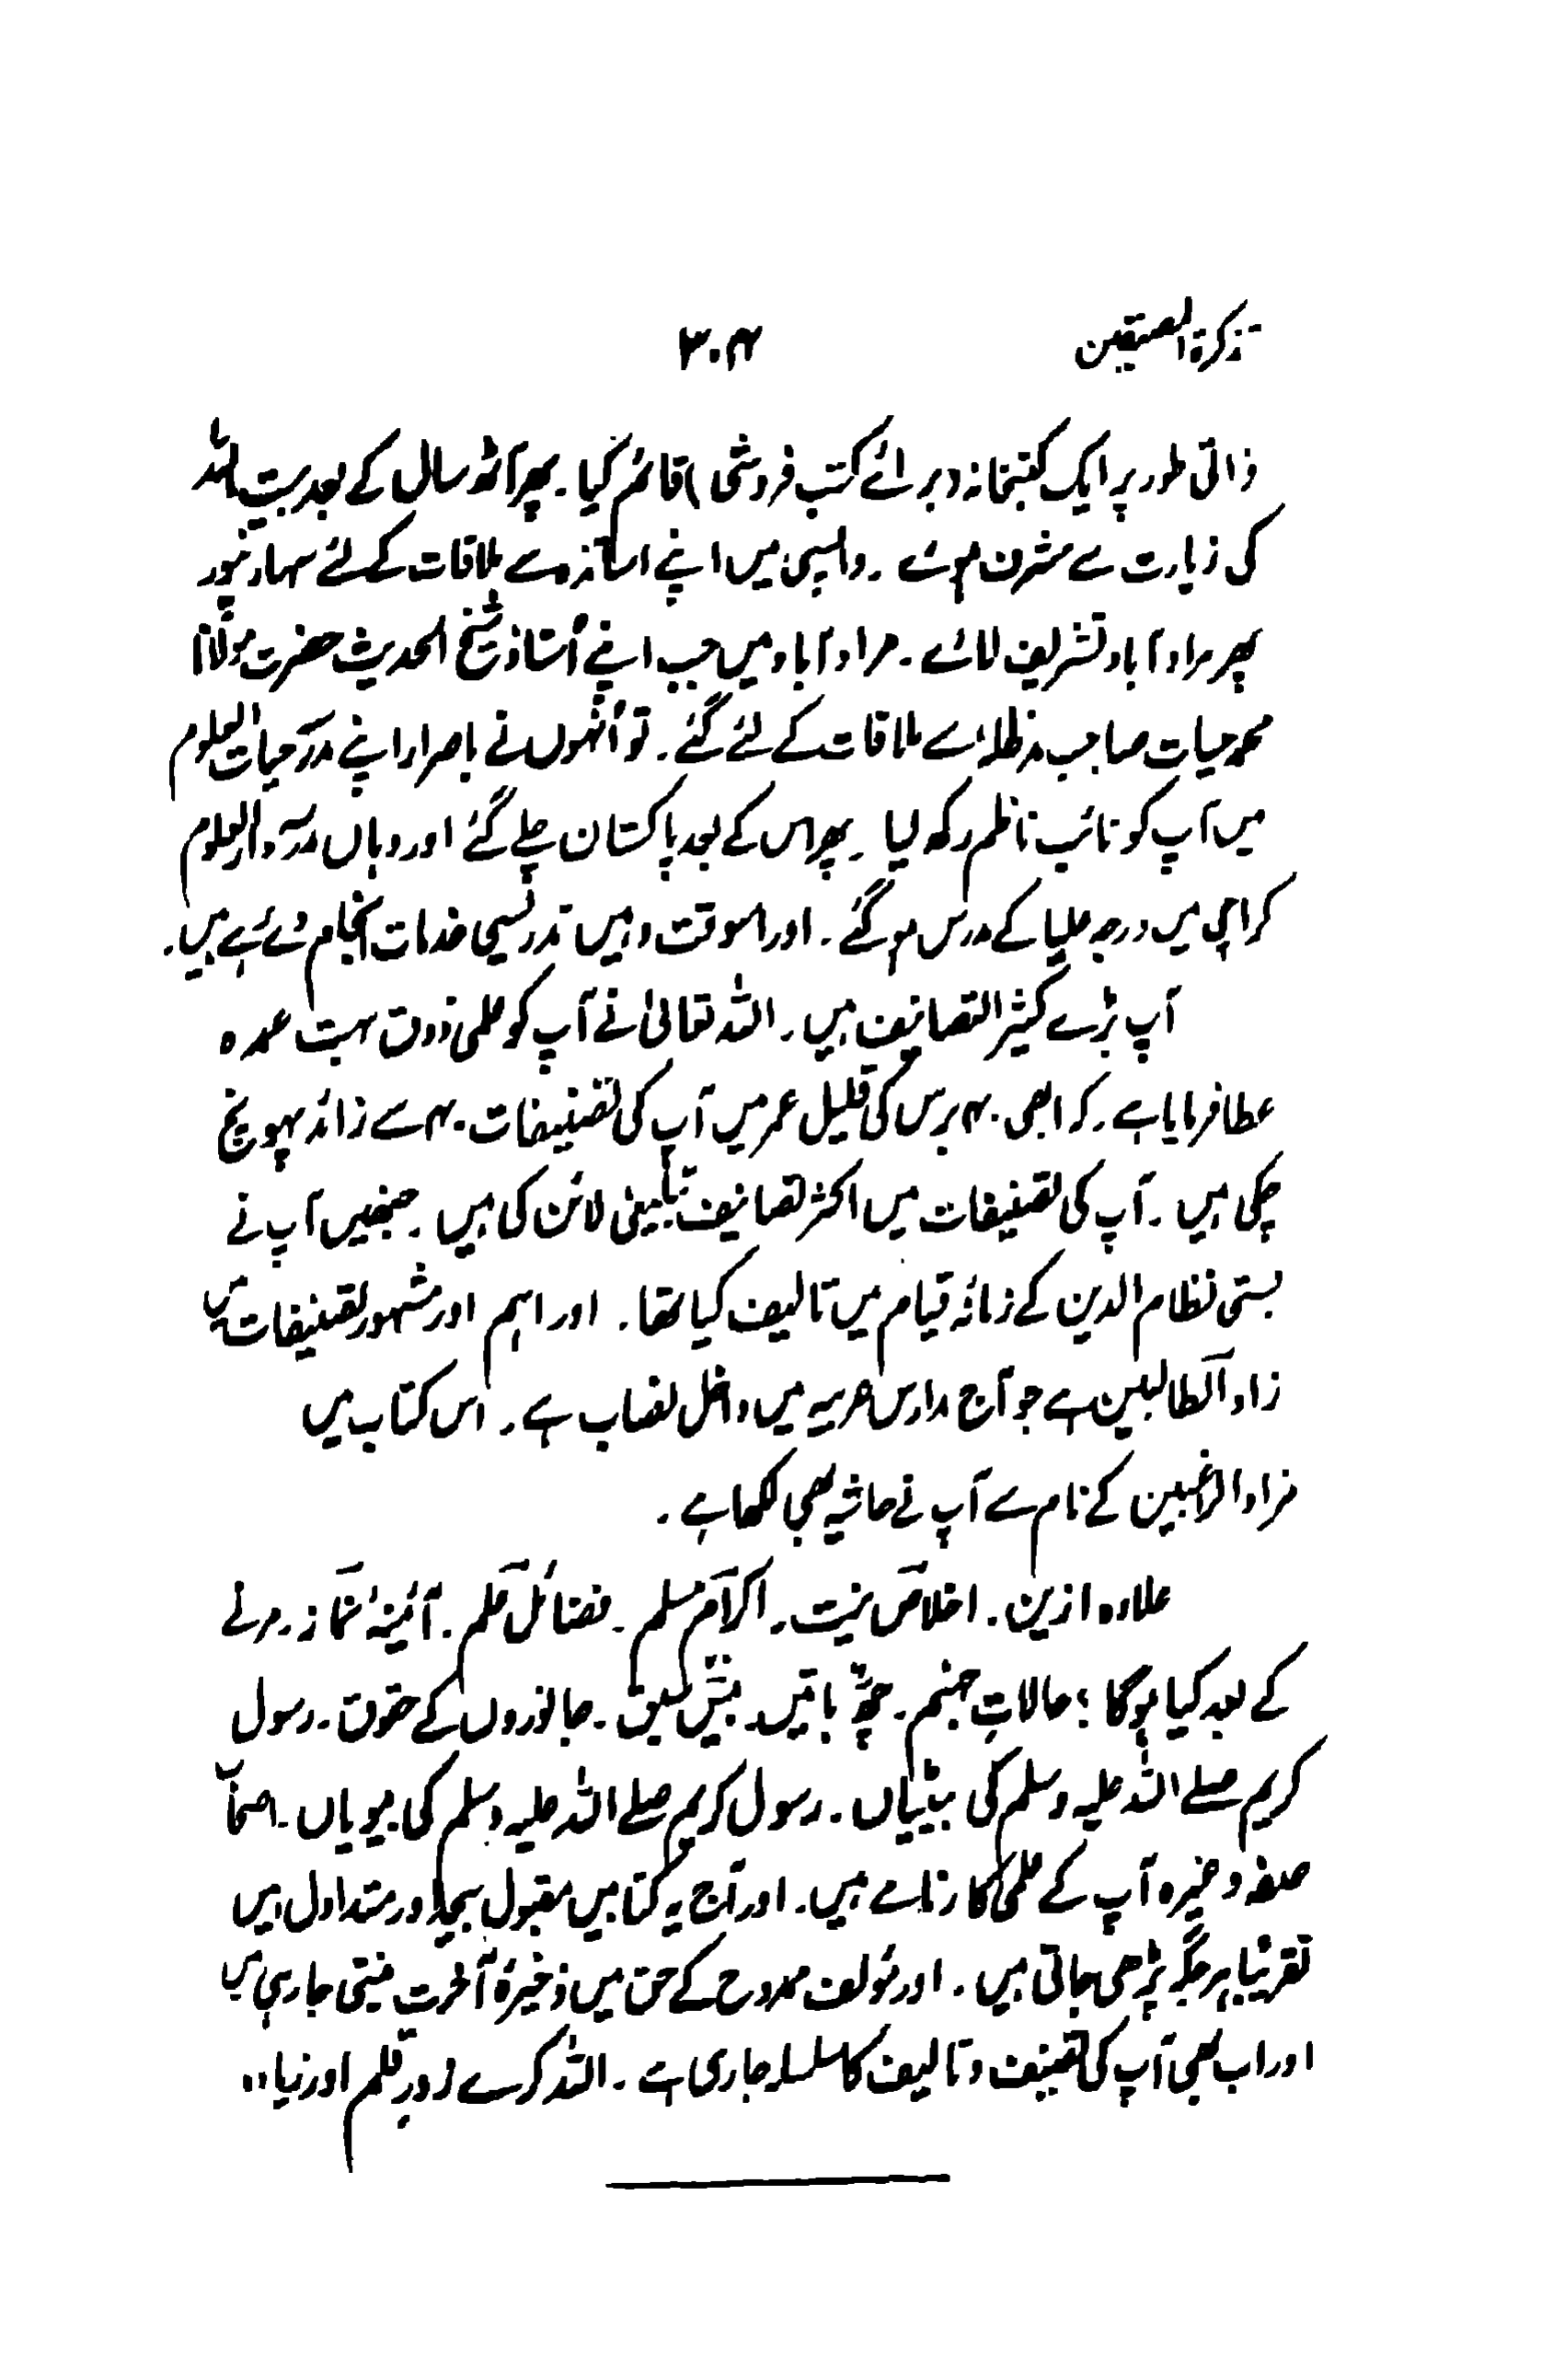 تذکرۃ المصنفین ۳۰۴
ذاتی طور پر ایک کتبخانہ (برائے کتب فروشی) قائم کیا۔ پھر آٹھ سال کے بعد بیت اللہ
کی زیارت سے مشرف ہوئے۔ واپسی میں اپنے اساتذہ سے ملاقات کے لئے سہارنپور
پھر مرادآباد تشریف لائے۔ مرادآباد میں جب اپنے اُستاذ شیخ الحدیث حضرت مولانا
محمد حیات صاحب مدظلہٗ سے ملاقات کے لئے گئے۔ تو اُنہوں نے باصرار اپنے مدرسہ حیات العلوم
میں آپ کو نائب ناظم رکھ لیا۔ پھر اس کے بعد پاکستان چلے گئے اور وہاں مدرسہ دارالعلوم
کراچی میں درجہ علیا کے مدرس ہو گئے۔ اور اسوقت وہیں تدریسی خدمات انجام دے رہے ہیں۔
آپ بڑے کثیر التصانیف ہیں۔ اللہ تعالیٰ نے آپ کو علمی ذوق بہت عمدہ
عطا فرمایا ہے۔ کہ ابھی ۴۰ برس کی قلیل عمر میں آپ کی تصنیفات ۴۰ سے زائد پہونچ
چکی ہیں۔ آپ کی تصنیفات میں اکثر تصانیف تبلیغی لائن کی ہیں۔ جنھیں آپ نے
بستی نظام الدین کے زمانۂ قیام میں تالیف کیا تھا۔ اور اہم اور مشہور تصنیفات میں
زاد الطالبین ہے جو آج مدارس عربیہ میں داخل نصاب ہے۔ اس کتاب میں
مزاد الراغبین کے نام سے آپ نے حاشیہ بھی لکھا ہے۔
علاوہ ازین۔ اخلاص نیت۔ اکرام مسلم۔ فضائل علم۔ آئینۂ نماز۔ مرنے
کے بعد کیا ہوگا؟ حالاتِ جہنم۔ چھ باتیں۔ بیش سبق۔ جانوروں کے حقوق۔ رسول
کریم صلے اللہ علیہ وسلم کی بیٹیاں۔ رسول کریم صلے اللہ علیہ وسلم کی بیویاں۔ اصحاب
صفہ وغیرہ آپ کے علمی کارنامے ہیں۔ اور آج یہ کتابیں مقبول بیحد اور متداول ہیں
تقریبًا ہر جگہ پڑھی جاتی ہیں۔ اور مؤلف ممدوح کے حق میں ذخیرۂ آخرت بنتی جارہی ہیں
اور اب بھی آپ کی تصنیف و تالیف کا سلسلہ جاری ہے۔ اللہ کرے زورِ قلم اور زیادہ